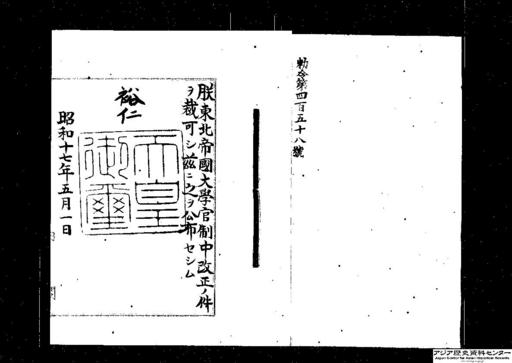 勅令第四百五十八號
朕東北帝國大學官制中改正ノ件
ヲ裁可シ茲ニ之ヲ公布セシム
裕仁
天皇
御璽
昭和十七年五月一日
アジア歴史資料センター
Japan Center for Asian Historical Records